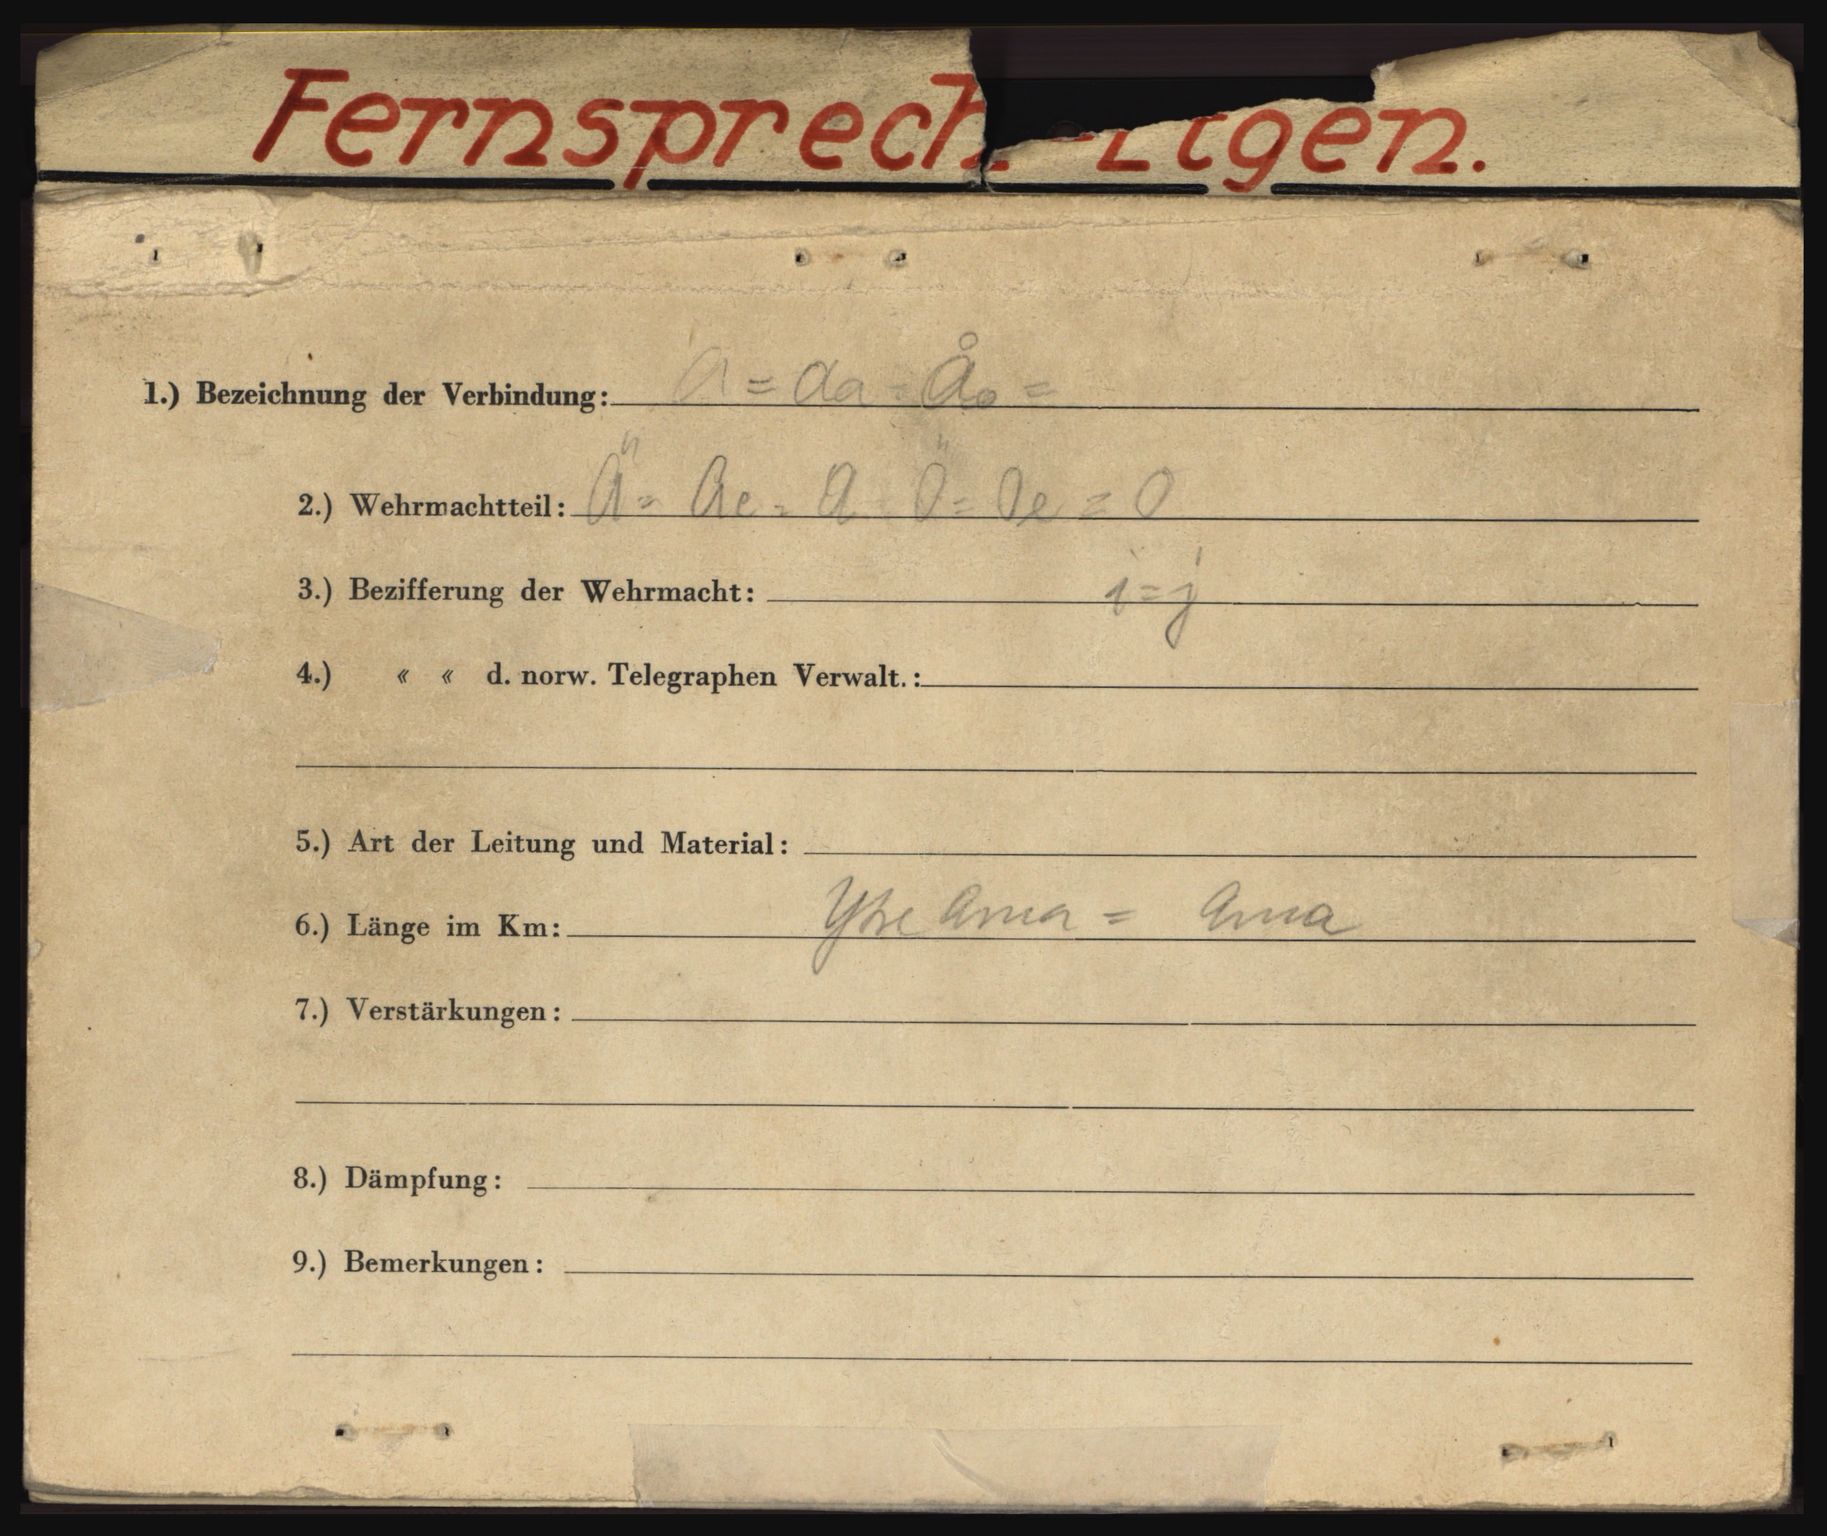 Fernsprech-Ltgen.
1.) Bezeichnung der Verbindung: A = Aa = Åo =
2.) Wehrmachtteil: Ä = Ae = A Ö = Oe = O
3.) Bezifferung der Wehrmacht: i = j
4.) « « d. norw. Telegraphen Verwalt.:
5.) Art der Leitung und Material:
6.) Länge im Km: Ytre Arna = Arna
7.) Verstärkungen:
8.) Dämpfung:
9.) Bemerkungen: